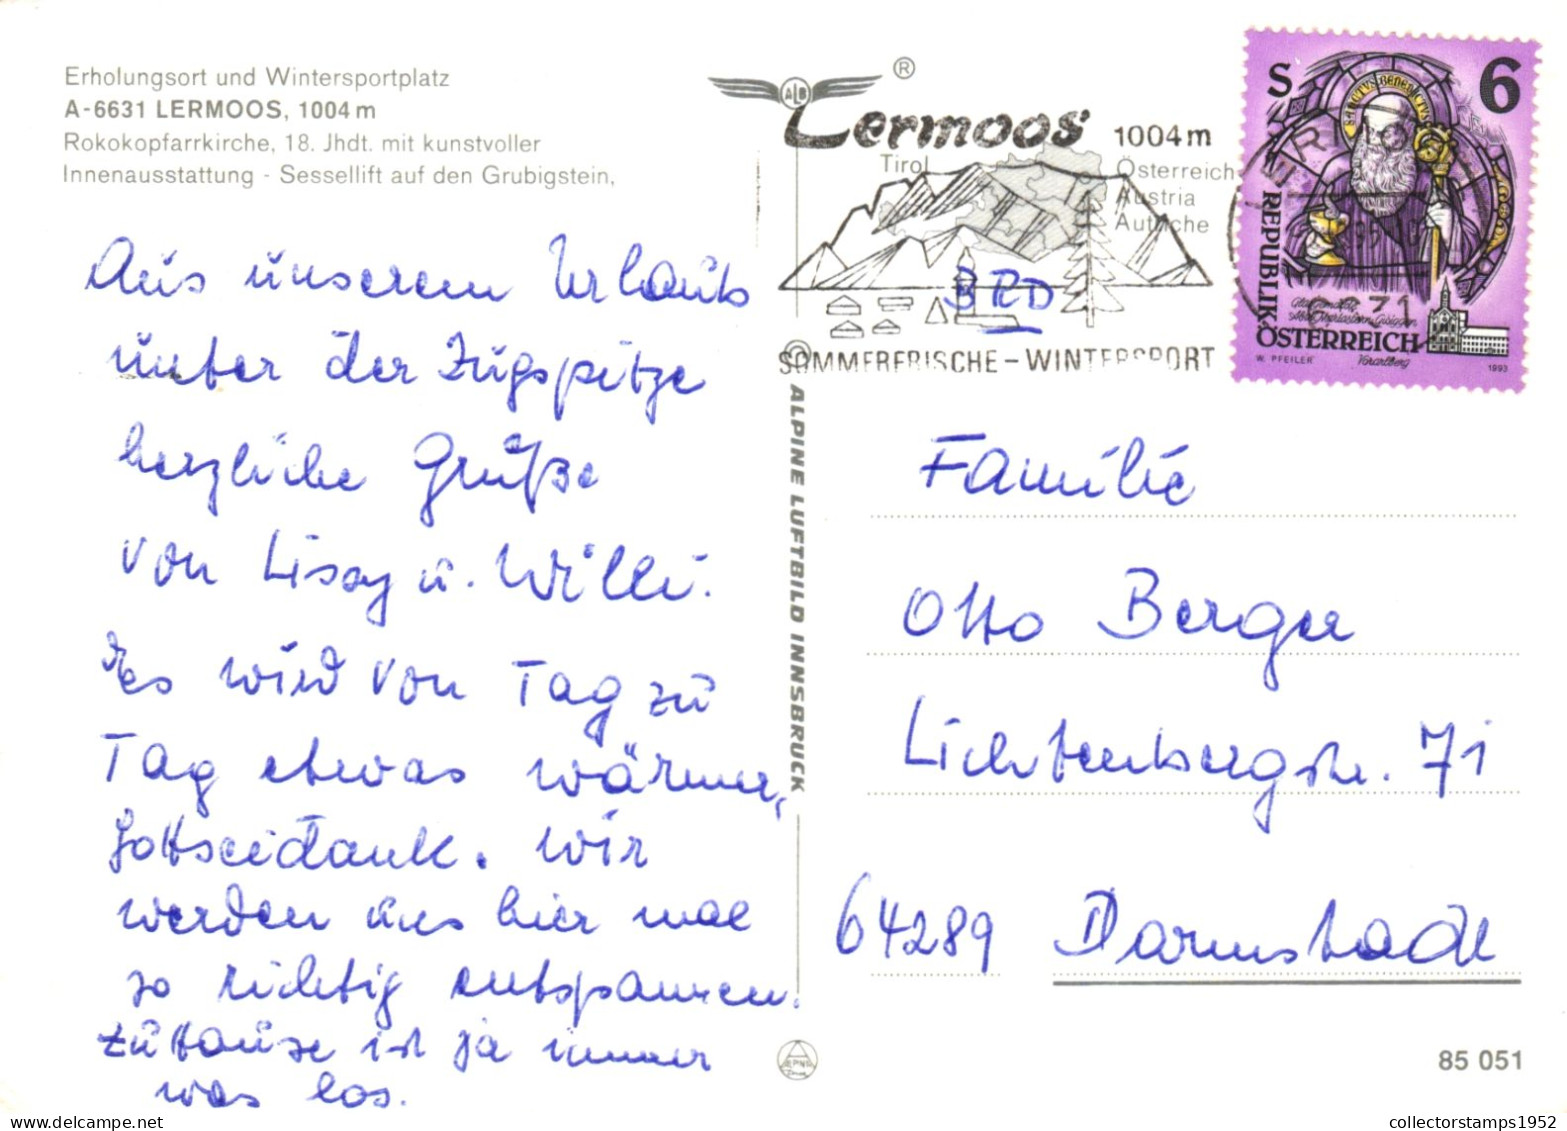 Erholungsort und Wintersportplatz
A-6631 LERMOOS, 1004 m
Rokokopfarrkirche, 18. Jhdt. mit kunstvoller
Innenausstattung - Sessellift auf den Grubigstein,
Aus unserem Urlaub
unter der Zugspitze
herzliche Grüße
von Lissy u. Willi.
Es wird von Tag zu
Tag etwas wärmer,
Gottseidank. Wir
werden uns hier mal
so richtig entspannen.
Zuhause ist ja immer
was los.
®
ALB
Lermoos
1004 m
Tirol
Österreich
Austria
Autriche
BRD
SOMMERFRISCHE – WINTERSPORT
ALPINE LUFTBILD INNSBRUCK
S 6
SANCTVS BENEDICTVS
REPUBLIK
ÖSTERREICH
W. PFEILER
Vorarlberg
1993
71
Familie
Otto Berger
Lichtenbergstr. 71
64289 Darmstadt
85 051
collectorstamps1952